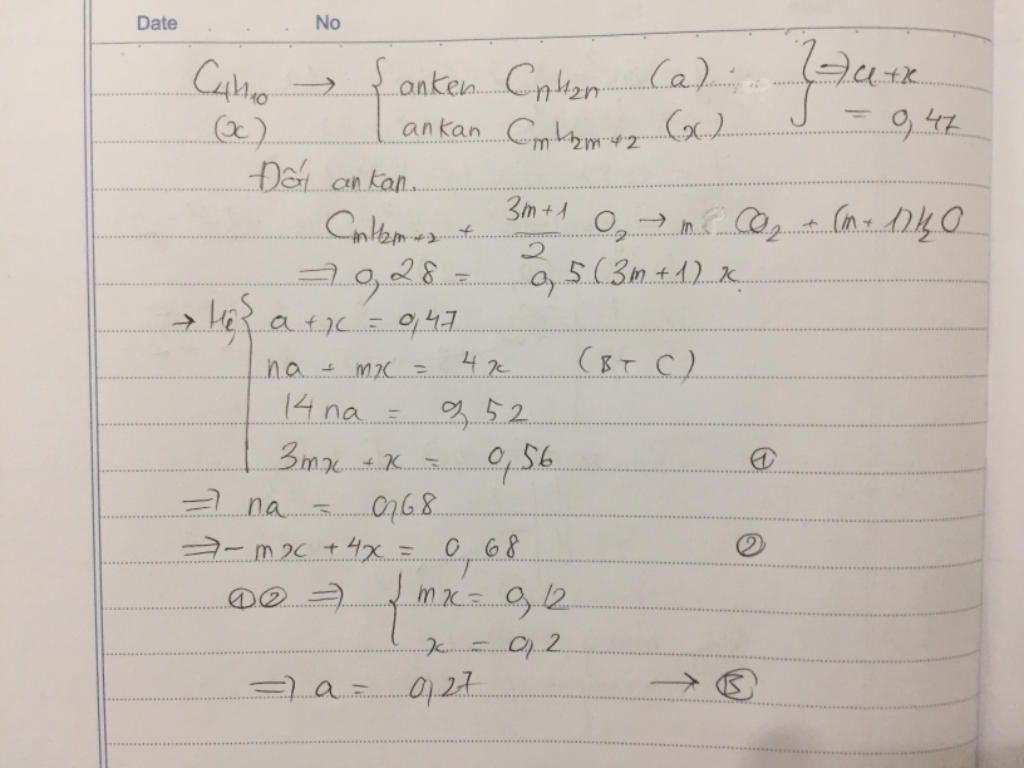 Date No
C4H10 → { anken CnH2n (a) } ⇒ a + x
(x) ankan CmH2m+2 (x) = 0,47
Đối ankan.
CmH2m+2 + (3m+1)/2 O2 → m CO2 + (m+1)H2O
⇒ 0,28 = 0,5(3m+1) x.
→ Hệ { a + x = 0,47
na + mx = 4x (BT C)
14na = 9,52
3mx + x = 0,56 ①
⇒ na = 0,68
⇒ - mx + 4x = 0,68 ②
①② ⇒ { mx = 0,12
x = 0,2
⇒ a = 0,27 → Ⓑ